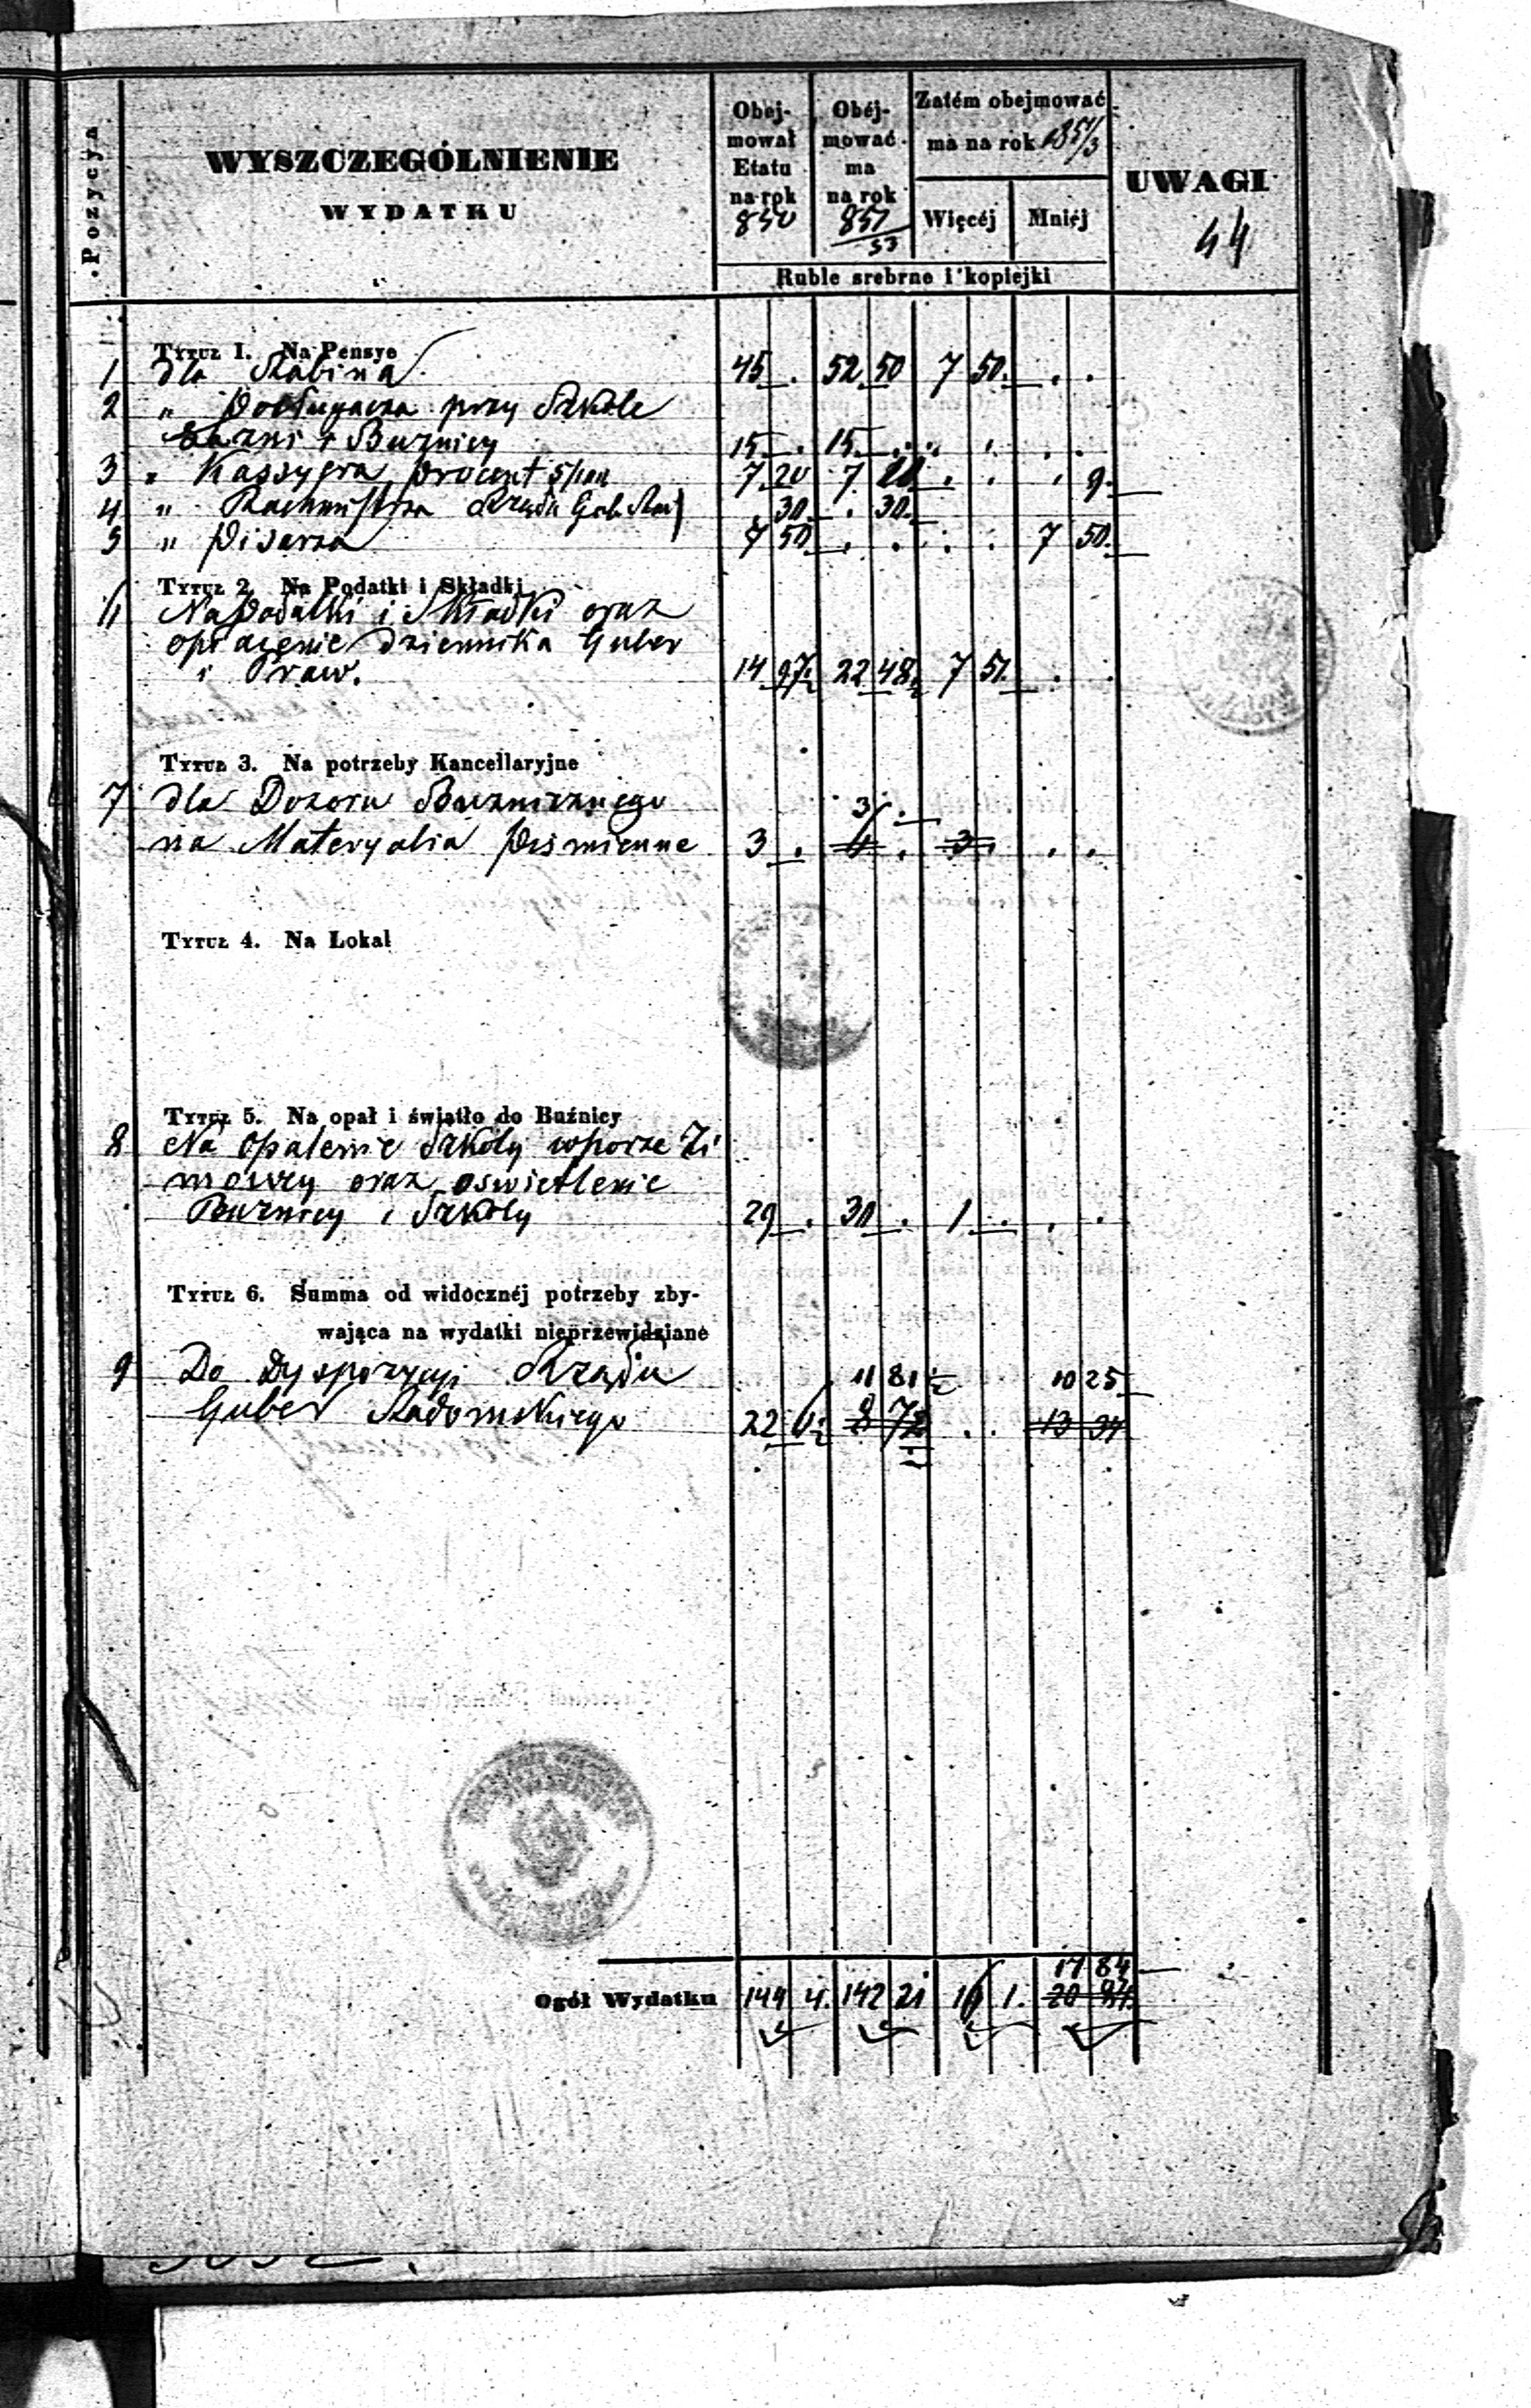 Pozycya
WYSZCZEGÓLNIENIE
WYDATKU
Obej-
mował
Etatu
na rok
850
Obéj-
mować
ma
na rok
851/53
Zatém obejmować
ma na rok 851/3
Więcéj Mniéj
UWAGI
44
Ruble srebrne i kopiejki
Tytuł 1. Na Pensye
1 dla Rabina 45 . 52 50 7 50 . .
2 " Posługacza przy Szkole
i Buznicy 15 . 15 . . . . .
3 " Kassyera procent 7 20 7 . . . 9
4 " Rachmistrza Rządu Gub. Rad 30 . 30
5 " Pisarza 7 50 . . . . 7 50
Tytuł 2. Na Podatki i Składki
6 Na Podatki i Składki oraz
opłacenie dziennika Guber
i Praw. 14 97½ 22 48½ 7 51 . .
Tytuł 3. Na potrzeby Kancellaryjne
7 dla Dozoru Buznicznego 3 .
na Materyalia piśmienne 3 . 6 . 3 . . .
Tytuł 4. Na Lokal
Tytuł 5. Na opał i światło do Buźnicy
8 Na opalenie Szkoły w porze Zi
mowey oraz oswietlenie
Buznicy i Szkoły 29 . 30 . 1 . . .
Tytuł 6. Summa od widocznéj potrzeby zby-
wająca na wydatki nieprzewidziane
9 Do Dyspozycyi Rządu 11 81½ 10 25
Guber Radomskiego 22 6½ 8 72½ . . 13 34
17 84
Ogół Wydatku 144 4 142 21 16 1 20 94